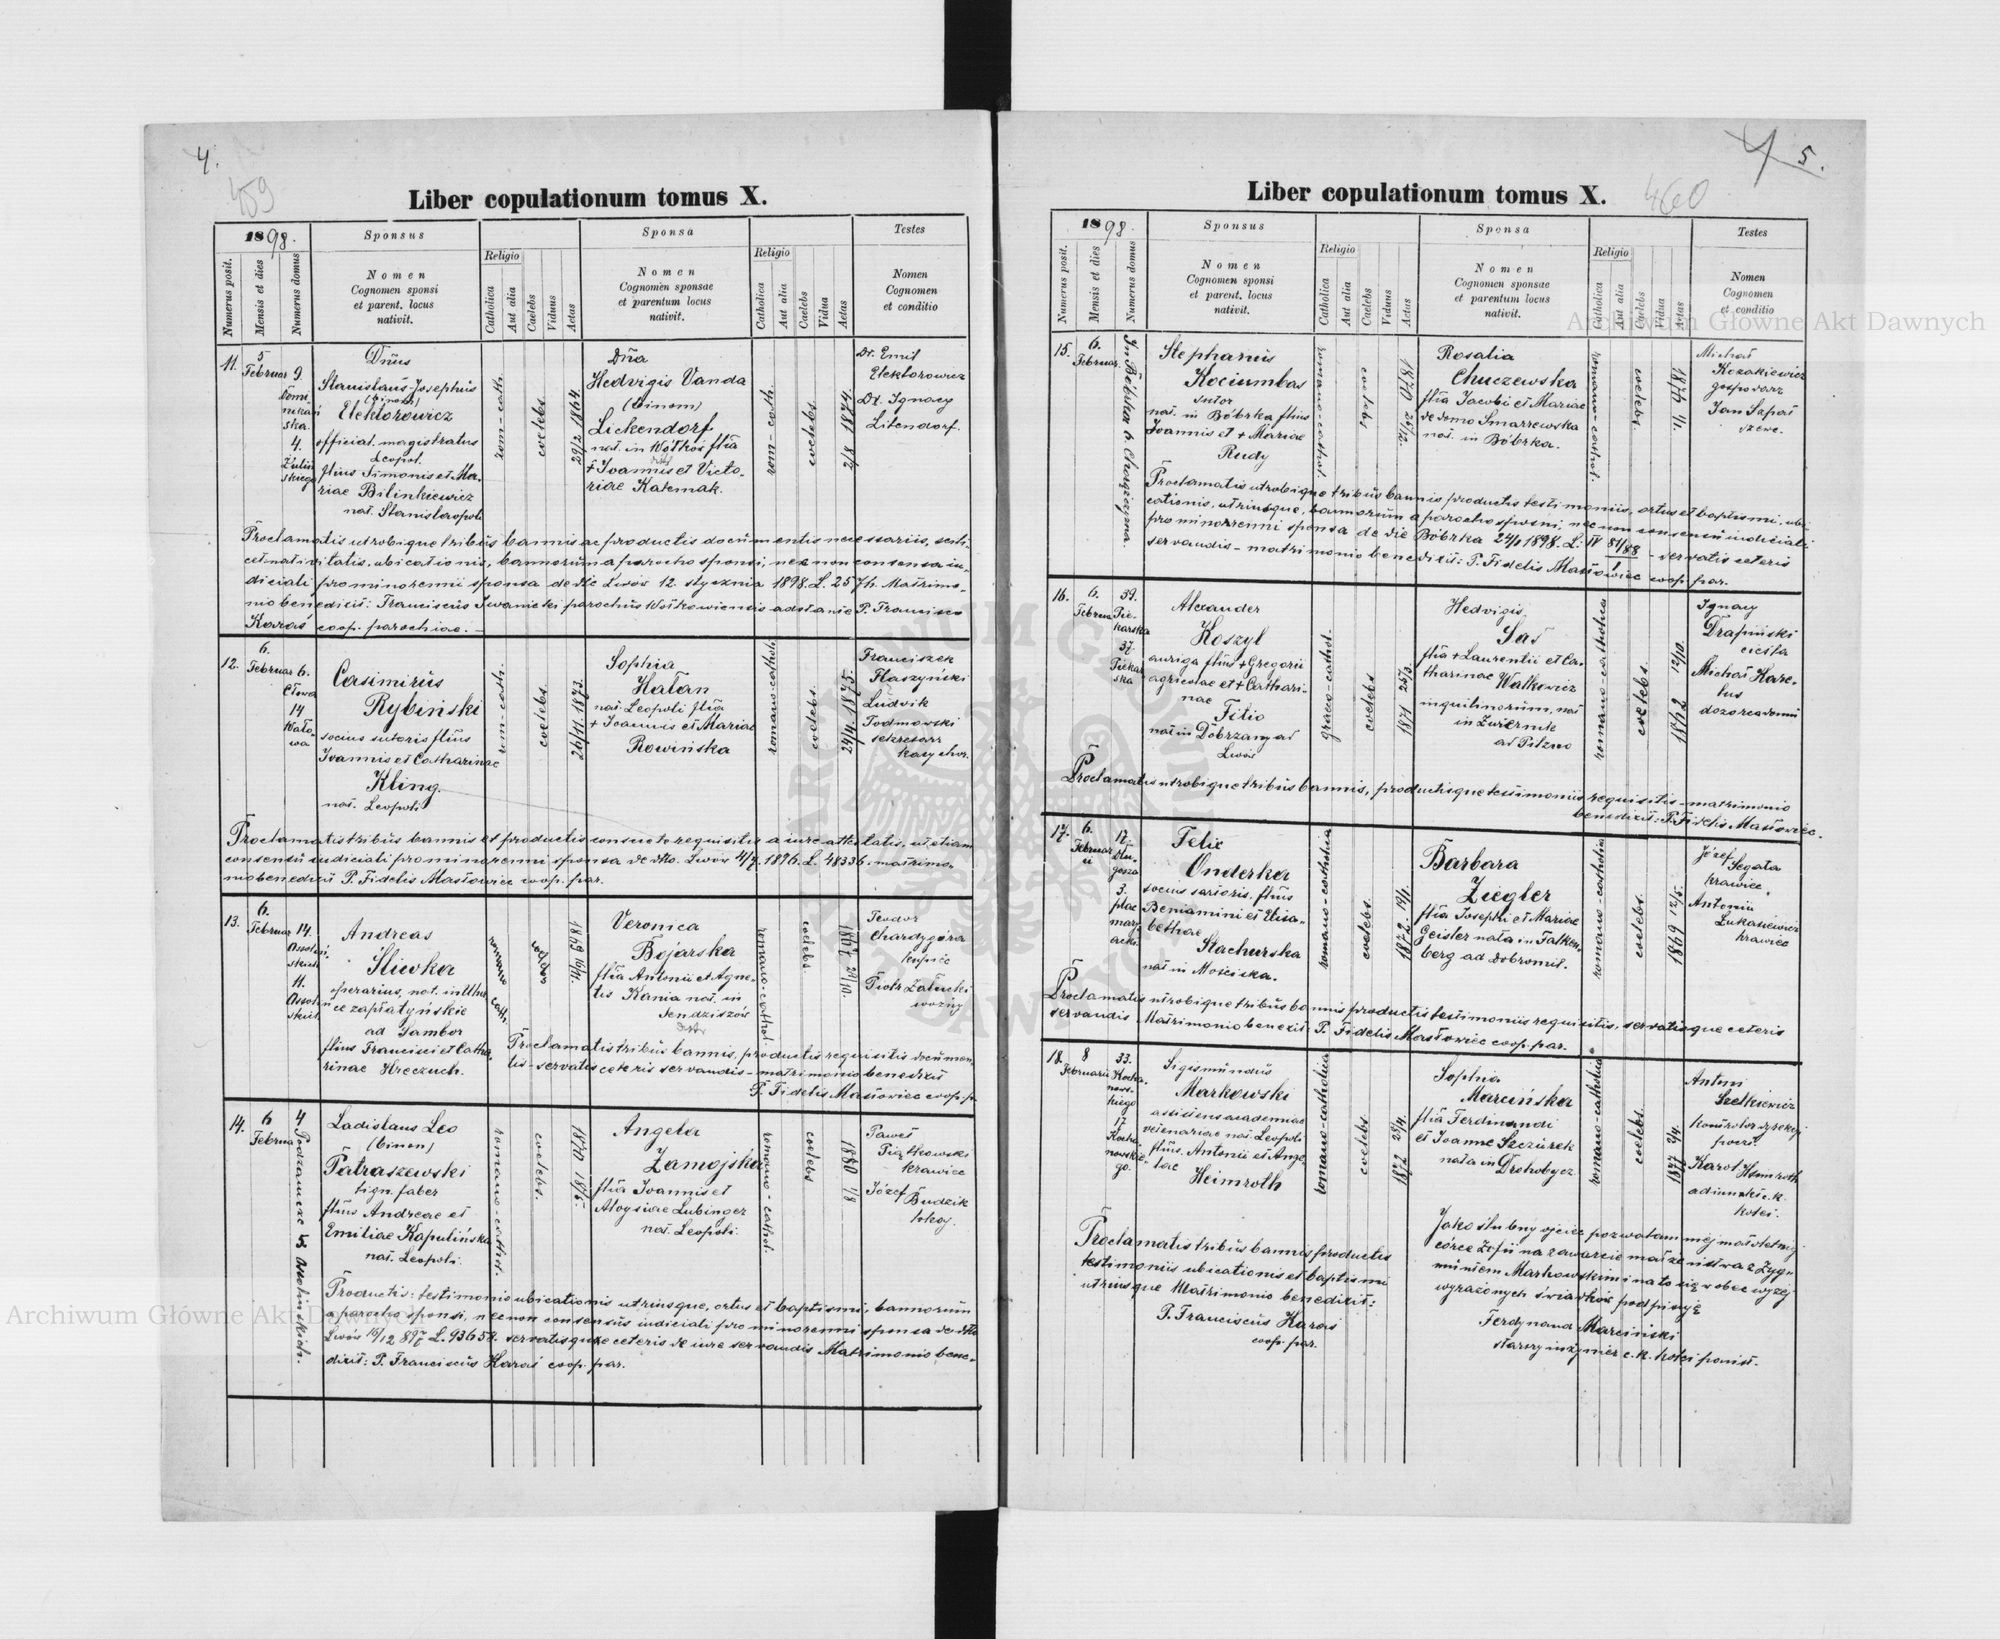 4.
459
Liber copulationum tomus X.
1898.
Sponsus
Sponsa
Testes
Numerus posit.
Mensis et dies
Numerus domus
Nomen
Cognomen sponsi
et parent. locus
nativit.
Religio
Catholica
Aut alia
Caelebs
Viduus
Aetas
Nomen
Cognomen sponsae
et parentum locus
nativit.
Religio
Catholica
Aut alia
Caelebs
Vidua
Aetas
Nomen
Cognomen
et conditio
11.
5
Februar
9
Domi-
nikań
ska.
4.
Zulin
skiego
Dnus
Stanislaus-Josephus
(binom)
Elektorowicz
official. magistratus
Leopol.
filius Simonis et Ma-
riae Bilinkiewicz
nat. Stanislaopoli
rom-cath.
coelebs
29/2 1864
Dna
Hedvigis Vanda
(binom)
Lickendorf
nat. in Wołków filia
+ Joannis et Victo-
riae Katemak.
rom-cath.
coelebs
2/8 1874.
Dr. Emil
Elektorowicz
Dr. Ignacy
Litendorf.
Proclamatis utrobique tribus bannis ac productis documentis necessariis, scili-
cet nativitatis, ubicationis, bannorum a parocho sponsi, nec non consensu iu-
diciali pro minorenni sponsa de dto Lwów 12. stycznia 1898. L. 2576. Matrimo-
nio benedixit: Franciscus Iwanicki parochus Wołkowiensis adstante P. Francisco
Karaś coop. parochiae.
12.
6.
Februar
6.
Cłowa
14
Wało-
wa
Casimirus
Rybiński
socius sutoris filius
Joannis et Catharinae
Kling.
nat. Leopoli
rom-cath.
coelebs.
26/11. 1873.
Sophia
Hałan
nat. Leopoli filia
+ Joannis et Mariae
Rowińska
romano-cathol.
coelebs.
29/4. 1875.
Franciszek
Flaszyński
Ludwik
Todmowski
sekretarz
kasy chor.
Proclamatis tribus bannis et productis consueto requisitis a iure attestatis, ut etiam
consensu iudiciali pro minorenni sponsa de dto. Lwów 4/7. 1896. L. 48336. matrimo-
nio benedixit P. Fidelis Masłowiec coop. par.
13.
6.
Februar
14.
Ossoliń-
skich
11.
Ossoliń
skich.
Andreas
Śliwka
operarius, nat. in Uher-
ce zapłatyńskie
ad Sambor
filius Francisci et Catha-
rinae Hreczuch.
romano cath.
coelebs
1869 16/11.
Veronica
Bojarska
filia Antonii et Agne-
tis Kania nat. in
Sendziszów
romano-cathol.
coelebs.
1867 24/10.
Teodor
Chardygóra
kupiec
Piotr Załucki
woźny
Proclamatis tribus bannis, productis requisitis documen-
tis - servatis ceteris servandis - matrimonio benedixit
P. Fidelis Masłowiec coop. p.
14.
6
Februa
4 Podzamcze 5. Ossolińskich.
Ladislaus Leo
(binom)
Patraszewski
lign. faber
filius Andreae et
Emiliae Kapulińska
nat. Leopoli.
romano-cathol.
coelebs.
1870 18/6.
Angela
Zamojska
filia Joannis et
Aloysiae Lubinger
nat. Leopoli.
romano-cathol.
coelebs
1880 1/8
Paweł
Piątkowski
krawiec
Józef Budzik
lokaj.
Productis: testimonio ubicationis utriusque, ortus et baptismi, bannorum
a parocho sponsi, nec non consensus iudiciali pro minorenni sponsa de dto
Lwów 10/12 897 L. 93658. servatisque ceteris de iure servandis Matrimonio bene-
dixit: P. Franciscus Karaś coop. par.
5.
460
Liber copulationum tomus X.
1898.
Sponsus
Sponsa
Testes
Numerus posit.
Mensis et dies
Numerus domus
Nomen
Cognomen sponsi
et parent. locus
nativit.
Religio
Catholica
Aut alia
Caelebs
Viduus
Aetas
Nomen
Cognomen sponsae
et parentum locus
nativit.
Religio
Catholica
Aut alia
Caelebs
Vidua
Aetas
Nomen
Cognomen
et conditio
15.
6.
Februar.
Stephanus
Kociumbas
sutor
nat. in Bóbrka filius
Joannis et + Mariae
Rudy
romano-cathol.
coelebs
1870 25/12.
Rosalia
Chuczewska
filia Jacobi et Mariae
de domo Smarzewska
nat. in Bóbrka.
romano-cathol.
coelebs.
Michał
Kozakiewicz
gospodarz
Jan Sapał
szewc.
Proclamatis utrobique tribus bannis productis testimoniis, ortus et baptismi, ubi-
cationis, utriusque, bannorum a parocho sponsi, nec non consensu iudiciali
pro minorenni sponsa de die Bóbrka 24/1 1898. L: IV 81/88 - servatis ceteris
servandis - matrimonio benedixit: P. Fidelis Masłowiec coop. par.
16.
6.
Februa
39.
Pie-
karska
37.
Piekar
ska
Alexander
Koszyl
auriga filius + Gregorii
agricolae et + Cathari-
nae
Fitio
nat in Dobrzany ad
Lwów
graeco-cathol.
coelebs
1871 25/3.
Hedvigis
Saś
filia + Laurentii et Ca-
tharinae Walkowicz
inquilinorum, nat
in Zwiernik
ad Pilzno
romano-catholica
coelebs.
1872 12/10.
Ignacy
Drapiński
cieśla
Michał Kare-
lus
dozorca domu
Proclamatis utrobique tribus bannis, productisque testimoniis requisitis - matrimonio
benedixit: P. Fidelis Masłowiec.
17.
6.
Februar
ii
17.
Dłu-
gosza
3.
plac
mary-
acki.
Felix
Onderka
socius sartoris, filius
Beniamini et Elisa-
bethae
Stachurska
nat in Mościska.
romano-catholica
coelebs.
1872. 19/4.
Barbara
Ziegler
filia Josephi et Mariae
Geisler nata in Falken-
berg ad Dobromil.
romano-catholica
coelebs.
1869 12/5.
Józef
Segata
krawiec.
Antoni
Łukasiewicz
krawiec
Proclamatis utrobique tribus bannis productis testimoniis requisitis, servatisque ceteris
servandis Matrimonio benedixit: P. Fidelis Masłowiec coop. par.
18.
8
Februarii
33.
Kocha-
nows-
kiego
17
Kocha-
nowskie-
go.
Sigismundus
Markowski
assistens academiae
vetenariae nat. Leopoli
filius. Antonii et Ange-
lae
Heimroth
romano-catholica
coelebs
1872 25/4.
Sophia
Marcińska
filia Ferdinandi
et Joanne Szczurek
nata in Drohobycz
romano-catholica
coelebs.
1877 2/4.
Antoni
Szetkiewicz
kontrolor dyrekcyi
poczt.
Karol Heimroth
adiunkt c. k.
kolei.
Proclamatis tribus bannis productis
testimoniis ubicationis et baptismi
utriusque Matrimonio benedixit:
P. Franciscus Karaś
coop. par.
Jako ślubny ojciec pozwalam mej małoletniej
córce Zofii na zawarcie małżeństwa z Zyg-
muntem Markowskim i na to się w obec wyżej
wyrażonych świadków podpisuję
Ferdynand Marciński
starszy inżynier c. k. kolei państ.
Archiwum Główne Akt Dawnych
Archiwum Główne Akt Dawnych
ARCHIWUM GŁÓWNE AKT DAWNYCH